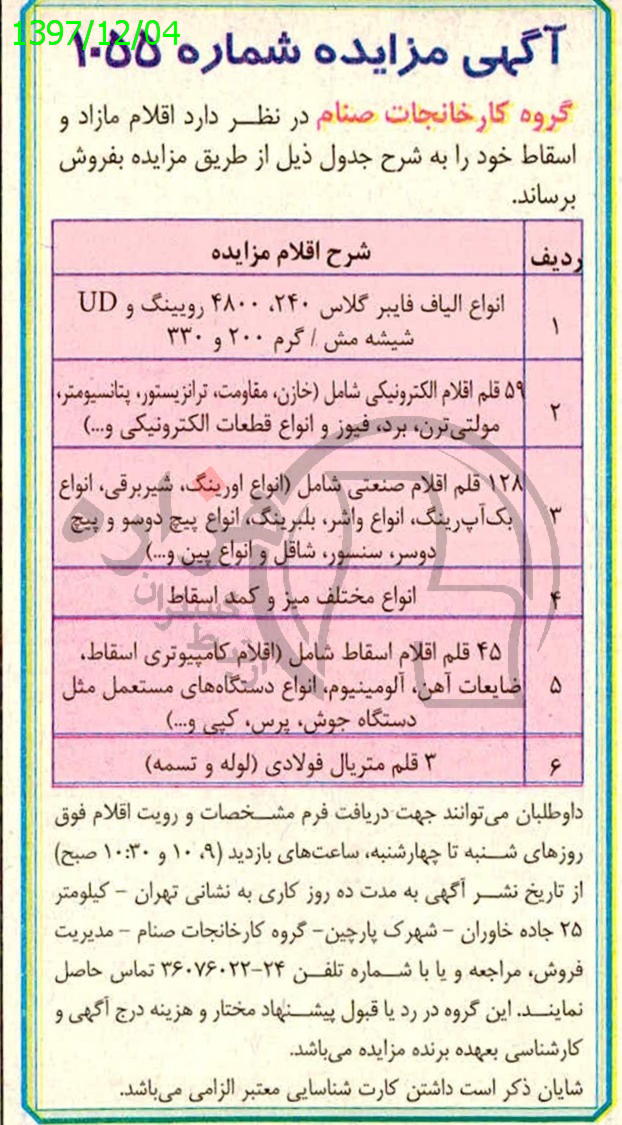 1397/12/04
آگهی مزایده شماره ۱۰۵۵
گروه کارخانجات صنام در نظر دارد اقلام مازاد و
اسقاط خود را به شرح جدول ذیل از طریق مزایده بفروش
برساند.
ردیف شرح اقلام مزایده
۱ انواع الیاف فایبر گلاس ۲۴۰، ۴۸۰۰ رویینگ و UD
شیشه مش / گرم ۲۰۰ و ۳۳۰
۲ ۵۹ قلم اقلام الکترونیکی شامل (خازن، مقاومت، ترانزیستور، پتانسیومتر،
مولتی‌ترن، برد، فیوز و انواع قطعات الکترونیکی و...)
۳ ۱۲۸ قلم اقلام صنعتی شامل (انواع اورینگ، شیربرقی، انواع
بک‌آپ‌رینگ، انواع واشر، بلبرینگ، انواع پیچ دوسو و پیچ
دوسر، سنسور، شاقل و انواع پین و...)
۴ انواع مختلف میز و کمد اسقاط
۵ ۴۵ قلم اقلام اسقاط شامل (اقلام کامپیوتری اسقاط،
ضایعات آهن، آلومینیوم، انواع دستگاه‌های مستعمل مثل
دستگاه جوش، پرس، کپی و...)
۶ ۳ قلم متریال فولادی (لوله و تسمه)
داوطلبان می‌توانند جهت دریافت فرم مشخصات و رویت اقلام فوق
روزهای شنبه تا چهارشنبه، ساعت‌های بازدید (۹، ۱۰ و ۱۰:۳۰ صبح)
از تاریخ نشر آگهی به مدت ده روز کاری به نشانی تهران - کیلومتر
۲۵ جاده خاوران - شهرک پارچین- گروه کارخانجات صنام - مدیریت
فروش، مراجعه و یا با شماره تلفن ۲۴-۳۶۰۷۶۰۲۲ تماس حاصل
نمایند. این گروه در رد یا قبول پیشنهاد مختار و هزینه درج آگهی و
کارشناسی بعهده برنده مزایده می‌باشد.
شایان ذکر است داشتن کارت شناسایی معتبر الزامی می‌باشد.